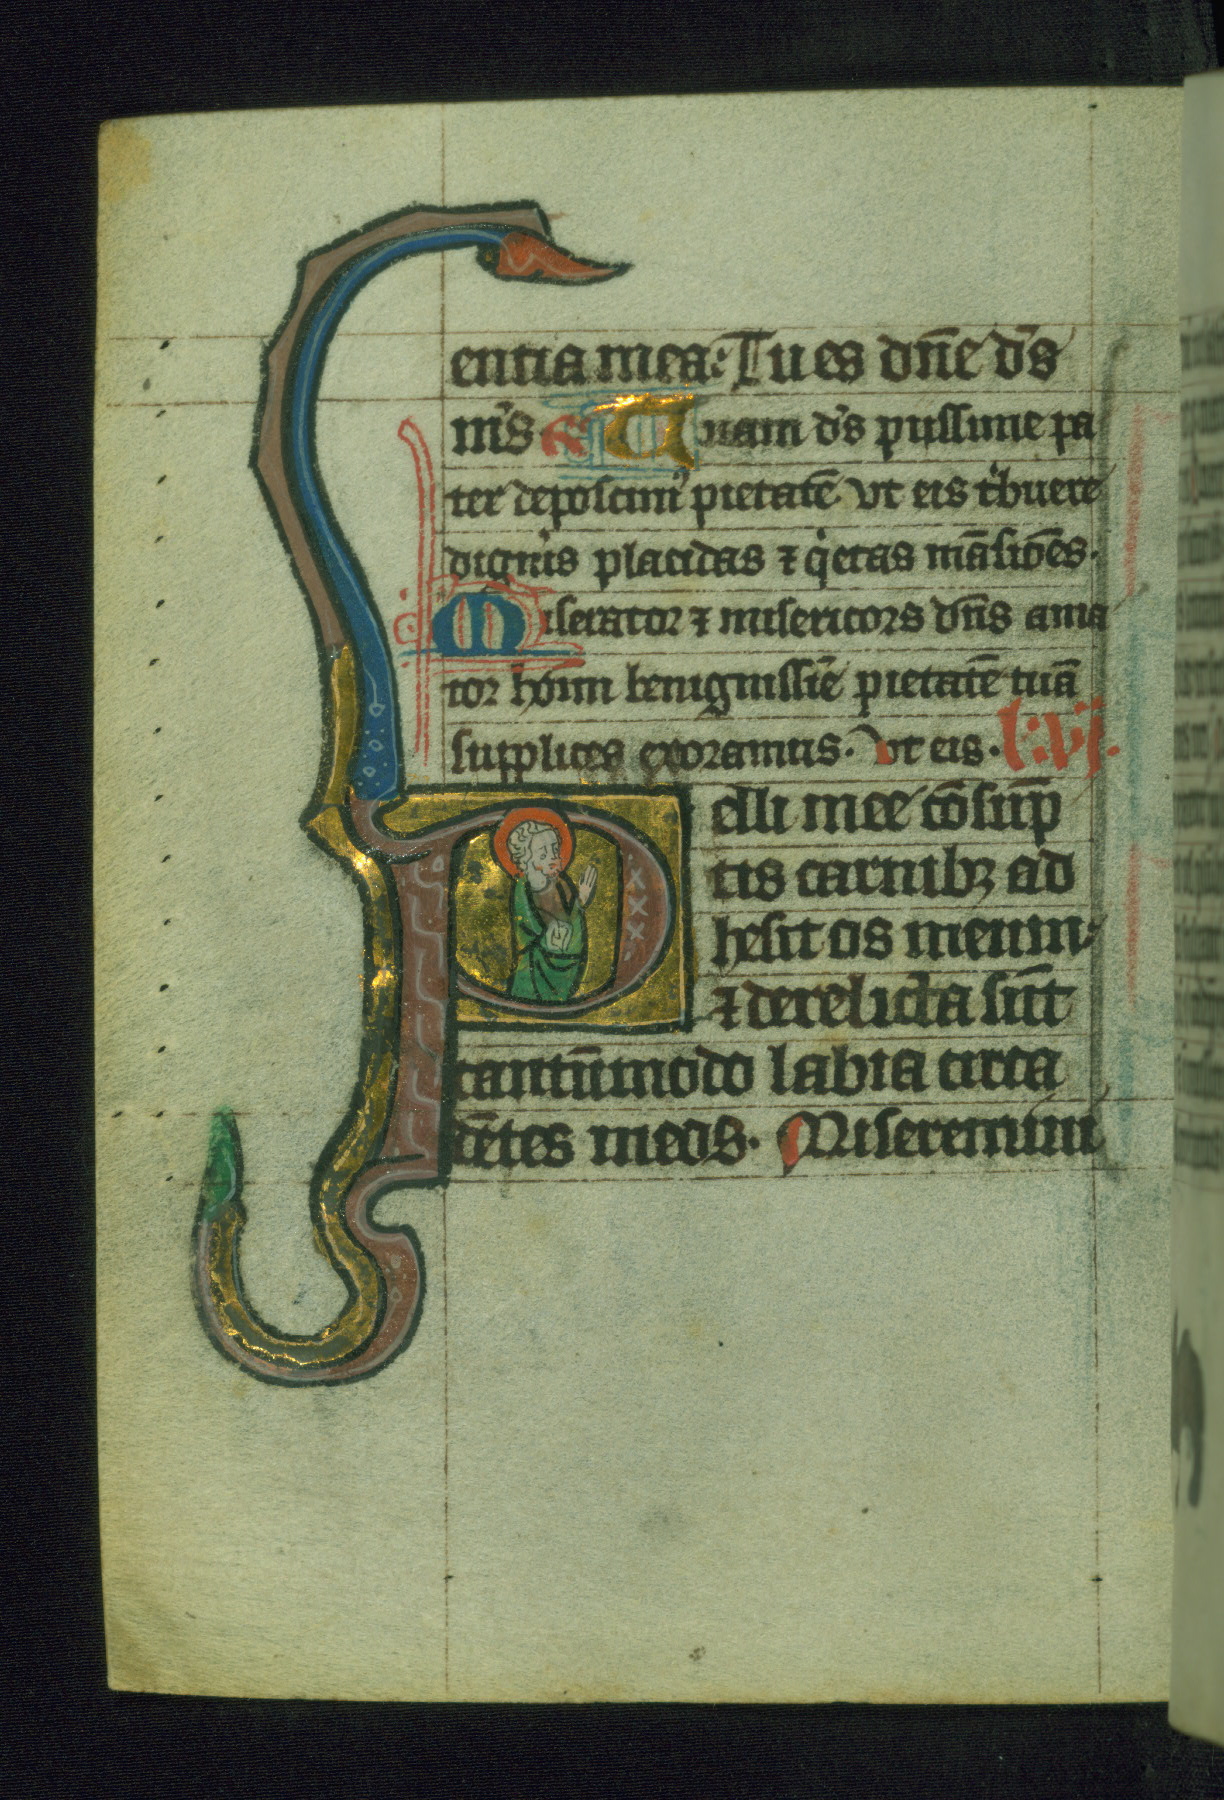 entia mea: Tu es dn̄e ds̄
ms̄ R Tuam ds̄ piissime pa
ter deposcim᷒ pietatē vt eis tͥbuere
digneris placidas ⁊ qͥetas mā̄siōēs.
Miserator ⁊ misericors dn̄s ama
tor hoīm benignissīe pietatē tuā
supplices exoramus. vt eis. l. vj.
Pelli mee cōsūp
tis carnibꝫ ad
hesit os meum:
⁊ derelicta sūt
tantūmodo labia circa
dētes meos. Miseremini